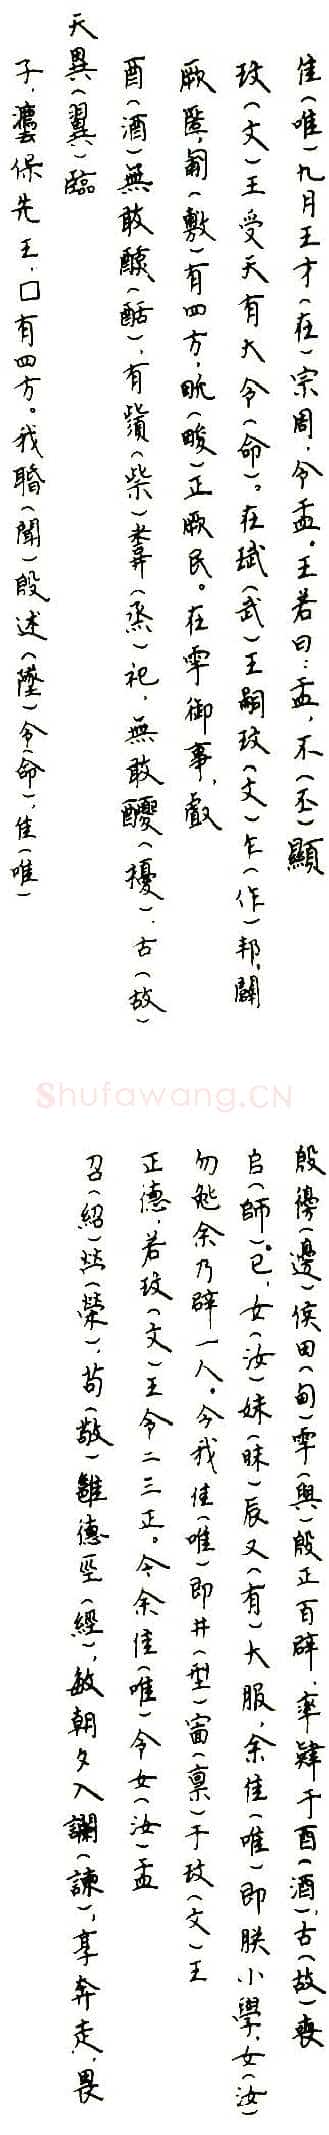 隹(唯)九月王才(在)宗周,令盂。王若曰:盂,不(丕)顯
玟(文)王受天有大令(命)。在珷(武)王嗣玟(文)乍(作)邦,闢
厥匿,匍(敷)有四方,畯(畯)正厥民。在雩御事,䖒
酉(酒)無敢酖(酣),有祡(柴)烝(烝)祀,無敢醻(擾),古(故)
天異(翼)臨
子,灋保先王,□有四方。我聞(聞)殷述(墜)令(命),隹(唯)
Shufawang.CN
殷邊(邊)侯田(甸)雩(與)殷正百辟,率肄于酉(酒),古(故)喪
𠂤(師)。已,女(汝)妹(昧)辰又(有)大服,余隹(唯)即朕小學,女(汝)
勿㓨余乃辟一人。今我隹(唯)即井(型)㐭(禀)于玟(文)王
正德,若玟(文)王令二三正。今余隹(唯)令女(汝)盂
召(紹)焂(榮),苟(敬)雝德巠(經),敏朝夕入讕(諫),享奔走,畏